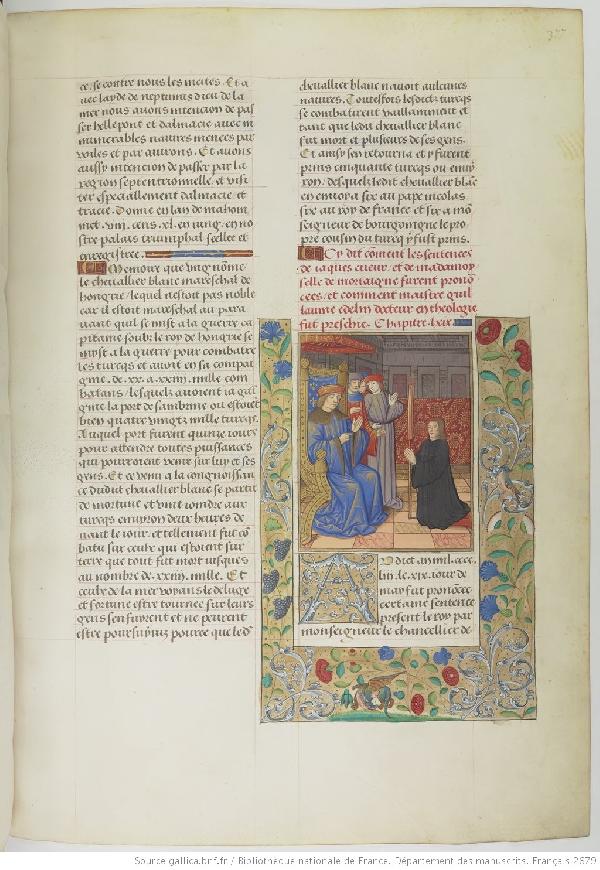 ce, se contre nous les incites. Et a
avec layde de neptunus dieu de la
mer nous avons intencion de pas
ser hellespont et dalmacie avec in
numerables navires menees par
voiles et par avirons. Et avons
aussy intencion de passer par la
region septentrionnelle, et visi
ter especiallement dalmacie, et
tracie. Donne en lan de mahom
met. viii. cens. xl. en iung. en no
stre palais triumphal scelles et
enregistres.
Memoire que ung nomme
le chevallier blanc mareschal de
hongrie / lequel nestoit pas noble
car il estoit mareschal au para
vant quil se mist a la guerre ca
pitaine soubz le roy de hongrie se
myst a la guerre pour combatre
les turcqs et avoit en sa compai
gnie. de. xx. a. xxiiij. mille com
batans / lesquels
gne la port de sambrine ou estoiet
bien quatre vingtz mille turcqs.
Auquel port furent quinze iours
pour attendre toutes puissances
qui pourroient venir sur luy et ses
gens. Et ce venu a la congnoissan
ce dudit chevallier blanc se partit
de mortune et vint iomdre aux
turcqs environ deux heures de
vant le iour et tellement fut co
batu sur ceulx qui estoient sur
terre que tout fut mort iusques
au nombre de. xxiiij. mille. Et
ceulx de la mer voyans le deluge
et fortune estre tournee sur leurs
gens senfuirent et ne peurent
estre poursuyuiz pource que led
chevallier blanc navoit aulcunes
navires. Toutesfois lesditz turcqs
se combatirent vaillamment et
tant que ledit chevallier blanc
fut mort et plusieurs de ses gens.
Et ainsy sen retourna et y furent
prins cinquante turcqs ou envi
ron. desquelz ledit chevallier blac
en envoya six au pape nicolas
six au roy de france et six a mo
seigneur de bourgoingne le pro
pre cousin du turcq y fust prins.
Cy dit coment les sentences
de iaques cueur, et de madamoy
selle de mortaigne furent prono
cees, et comment maistre guil
laume edelin docteur en theologie
fut presche. Chapitre. lxix.
Audict an mil. cccc.
liii. le. xix. iour de
may fut prononcee
certaine sentence
present le roy par
monseigneur le chancellier de
Source gallica.bnf.fr / Bibliothèque nationale de France. Département des manuscrits. Français 2679